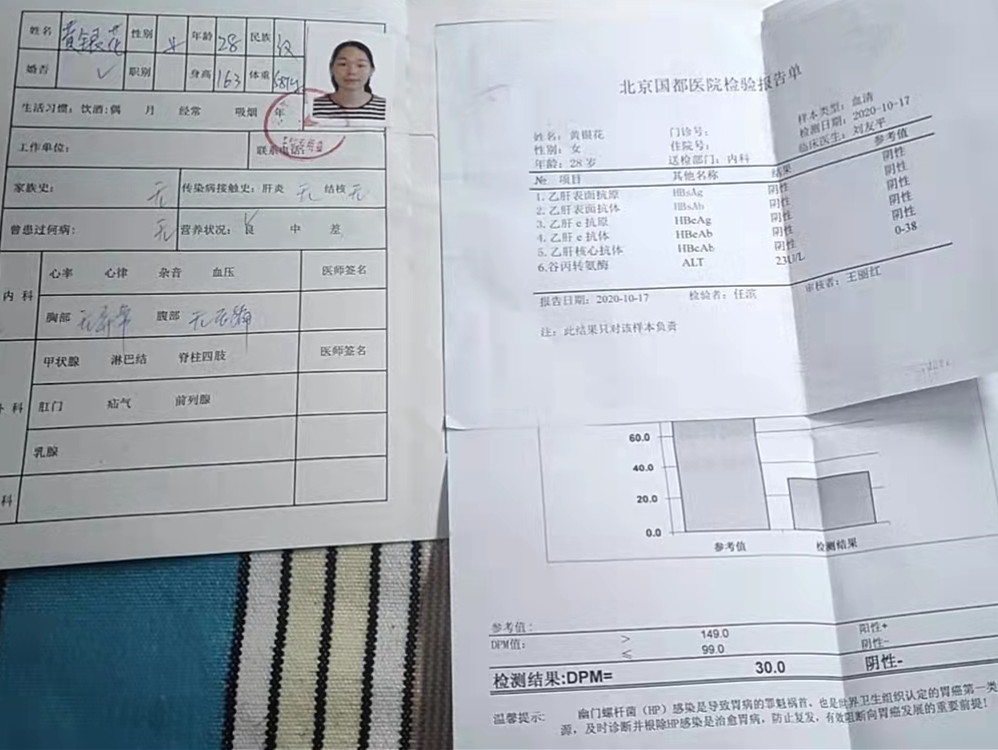 姓名 黄银花 性别 女 年龄 28 民族 汉
婚否 ✓ 职别 身高 163 体重
生活习惯: 饮酒: 偶 月 经常 吸烟 年
工作单位: 联系电话:
家族史: 无 传染病接触史: 肝炎 无 结核 无
曾患过何病: 无 营养状况: 良 中 差
内科 心率 心律 杂音 血压 医师签名
胸部 无异常 腹部
甲状腺 淋巴结 脊柱四肢 医师签名
科 肛门 疝气 前列腺
乳腺
科
北京国都医院检验报告单
姓名: 黄银花 门诊号: 样本类型: 血清
性别: 女 住院号: 检测日期: 2020-10-17
年龄: 28 岁 送检部门: 内科 临床医生: 刘友平
№ 项目 其他名称 结果 参考值
1. 乙肝表面抗原 HBsAg 阴性 阴性
2. 乙肝表面抗体 HBsAb 阴性 阴性
3. 乙肝 e 抗原 HBeAg 阴性 阴性
4. 乙肝 e 抗体 HBeAb 阴性 阴性
5. 乙肝核心抗体 HBcAb 阴性 阴性
6. 谷丙转氨酶 ALT 23U/L 0-38
报告日期: 2020-10-17 检验者: 任滨 审核者: 王丽红
注: 此结果只对该样本负责
60.0
40.0
20.0
0.0
参考值 检测结果
参考值:
DPM值: > 149.0 阳性+
≤ 99.0 阴性-
检测结果:DPM= 30.0 阴性-
温馨提示: 幽门螺杆菌（HP）感染是导致胃病的罪魁祸首，也是世界卫生组织认定的胃癌第一类
源，及时诊断并根除HP感染是治愈胃病，防止复发，有效阻断向胃癌发展的重要前提！